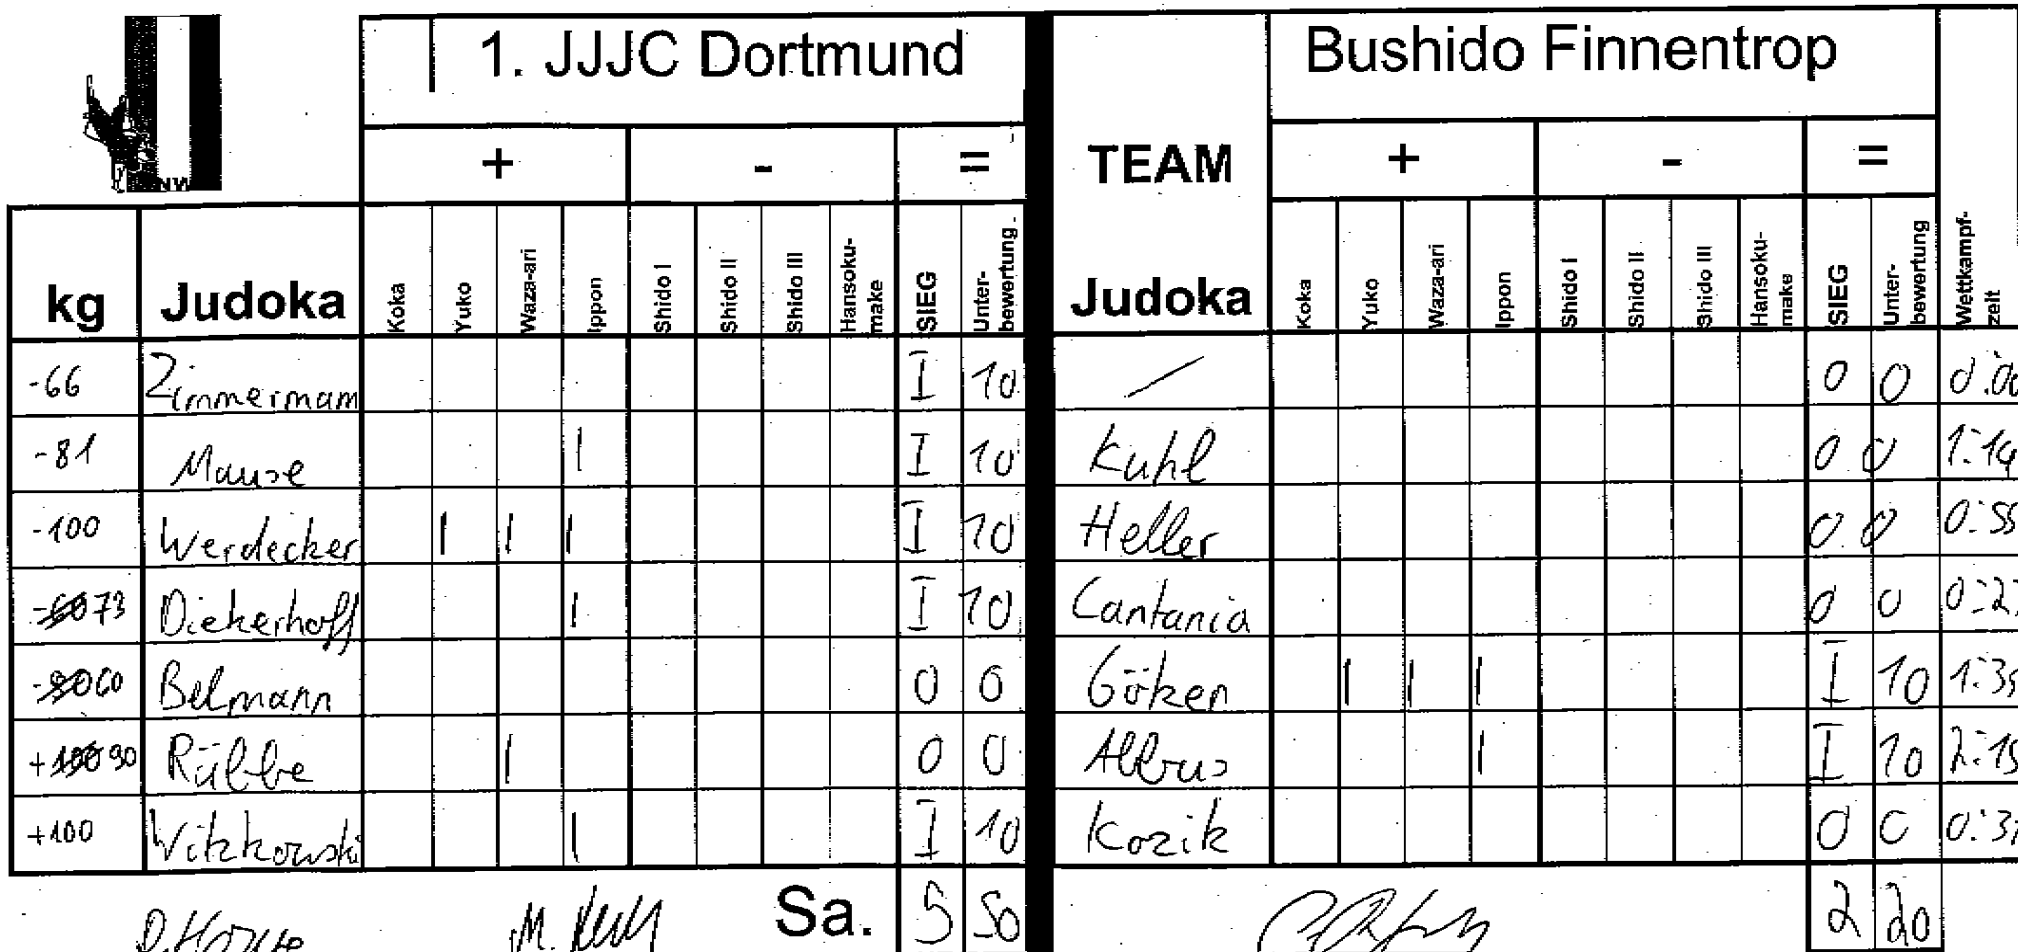 1. JJJC Dortmund Bushido Finnentrop
NW
+ - = TEAM + - =
kg Judoka Koka Yuko Waza-ari Ippon Shido I Shido II Shido III Hansoku-make SIEG Unter-bewertung Judoka Koka Yuko Waza-ari Ippon Shido I Shido II Shido III Hansoku-make SIEG Unter-bewertung Wettkampf-zeit
-66 Zimmermann I 10 / 0 0 0:00
-81 Mause | I 10 Kuhl 0 0 1:14
-100 Werdecker | | | I 10 Heller 0 0 0:55
-73 Diekerhoff | I 10 Cantania 0 0
-60 Belmann 0 0 Göken | | | I 10
90 Rübbe | 0 0 Albus | I 10
+100 Witzkowski | I 10 Kozik 0 0
Sa. 5 50 2 20